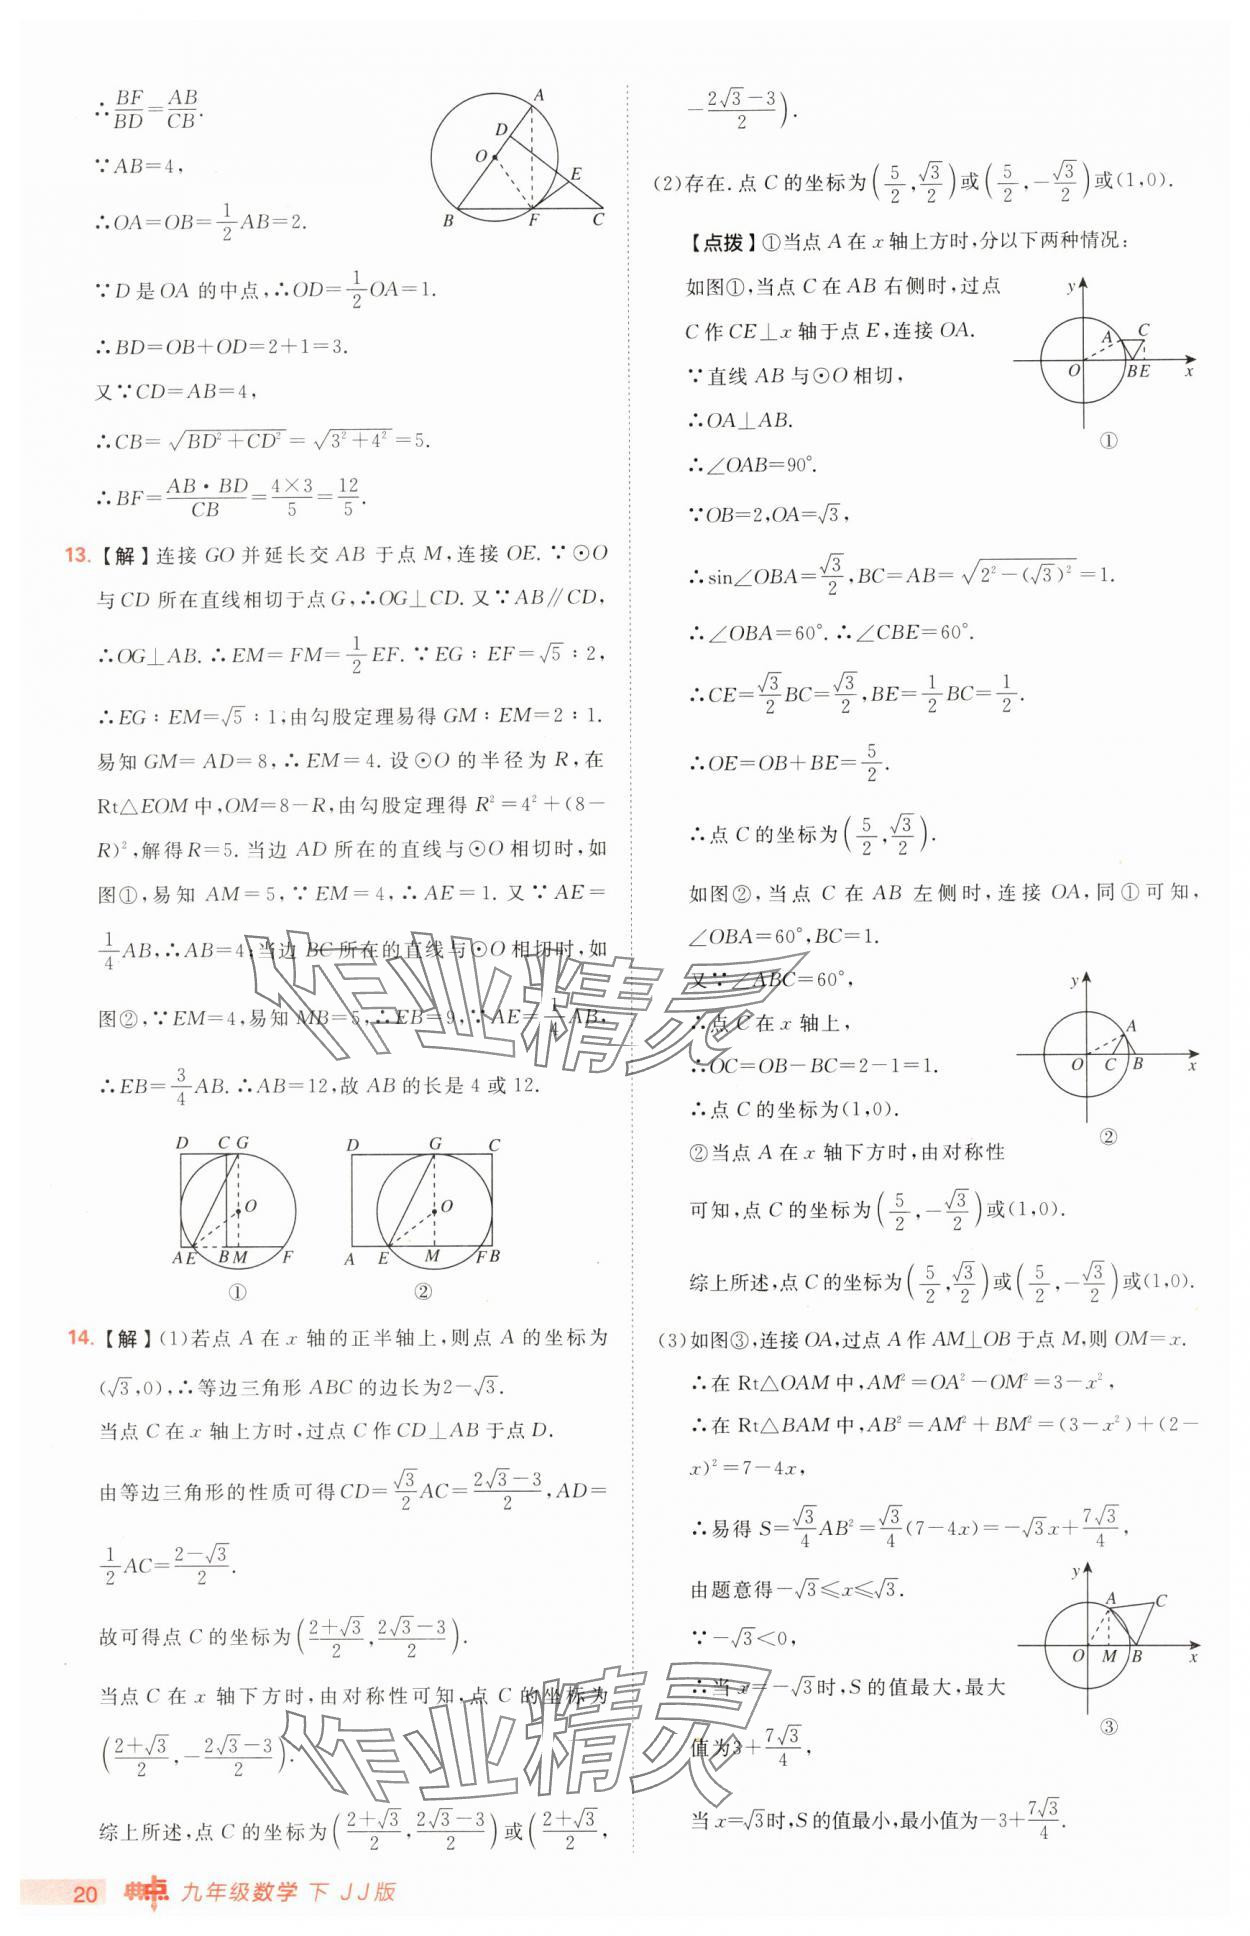 ∴BF/BD=AB/CB.
∵AB=4,
∴OA=OB=1/2AB=2.
∵D是OA的中点,∴OD=1/2OA=1.
∴BD=OB+OD=2+1=3.
又∵CD=AB=4,
∴CB=√(BD²+CD²)=√(3²+4²)=5.
∴BF=AB·BD/CB=4×3/5=12/5.
A
D
O
E
B
F
C
13.【解】连接GO并延长交AB于点M,连接OE.∵⊙O
与CD所在直线相切于点G,∴OG⊥CD.又∵AB∥CD,
∴OG⊥AB.∴EM=FM=1/2EF.∵EG:EF=√5:2,
∴EG:EM=√5:1,由勾股定理易得GM:EM=2:1.
易知GM=AD=8,∴EM=4.设⊙O的半径为R,在
Rt△EOM中,OM=8-R,由勾股定理得R²=4²+(8-
R)²,解得R=5.当边AD所在的直线与⊙O相切时,如
图①,易知AM=5,∵EM=4,∴AE=1.又∵AE=
1/4AB,∴AB=4;当边BC所在的直线与⊙O相切时,如
图②,∵EM=4,易知MB=5,∴EB=9,∵AE=1/4AB,
∴EB=3/4AB.∴AB=12,故AB的长是4或12.
D C G
O
A E B M F
①
D G C
O
A E M F B
②
14.【解】(1)若点A在x轴的正半轴上,则点A的坐标为
(√3,0),∴等边三角形ABC的边长为2-√3.
当点C在x轴上方时,过点C作CD⊥AB于点D.
由等边三角形的性质可得CD=√3/2AC=(2√3-3)/2,AD=
1/2AC=(2-√3)/2.
故可得点C的坐标为((2+√3)/2,(2√3-3)/2).
当点C在x轴下方时,由对称性可知,点C的坐标为
((2+√3)/2,-(2√3-3)/2).
综上所述,点C的坐标为((2+√3)/2,(2√3-3)/2)或((2+√3)/2,
-(2√3-3)/2).
(2)存在.点C的坐标为(5/2,√3/2)或(5/2,-√3/2)或(1,0).
【点拨】①当点A在x轴上方时,分以下两种情况:
如图①,当点C在AB右侧时,过点
C作CE⊥x轴于点E,连接OA.
∵直线AB与⊙O相切,
∴OA⊥AB.
∴∠OAB=90°.
∵OB=2,OA=√3,
∴sin∠OBA=√3/2,BC=AB=√(2²-(√3)²)=1.
∴∠OBA=60°.∴∠CBE=60°.
∴CE=√3/2BC=√3/2,BE=1/2BC=1/2.
∴OE=OB+BE=5/2.
∴点C的坐标为(5/2,√3/2).
y
A C
O B E x
①
如图②,当点C在AB左侧时,连接OA,同①可知,
∠OBA=60°,BC=1.
又∵∠ABC=60°,
∴点C在x轴上,
∴OC=OB-BC=2-1=1.
∴点C的坐标为(1,0).
②当点A在x轴下方时,由对称性
可知,点C的坐标为(5/2,-√3/2)或(1,0).
综上所述,点C的坐标为(5/2,√3/2)或(5/2,-√3/2)或(1,0).
y
A
O C B x
②
(3)如图③,连接OA,过点A作AM⊥OB于点M,则OM=x.
∴在Rt△OAM中,AM²=OA²-OM²=3-x²,
∴在Rt△BAM中,AB²=AM²+BM²=(3-x²)+(2-
x)²=7-4x,
∴易得S=√3/4AB²=√3/4(7-4x)=-√3x+7√3/4,
由题意得-√3≤x≤√3.
∵-√3<0,
∴当x=-√3时,S的值最大,最大
值为3+7√3/4,
当x=√3时,S的值最小,最小值为-3+7√3/4.
y
A C
O M B x
③
作业精灵
作业精灵
20 典中点 九年级数学 下 JJ版